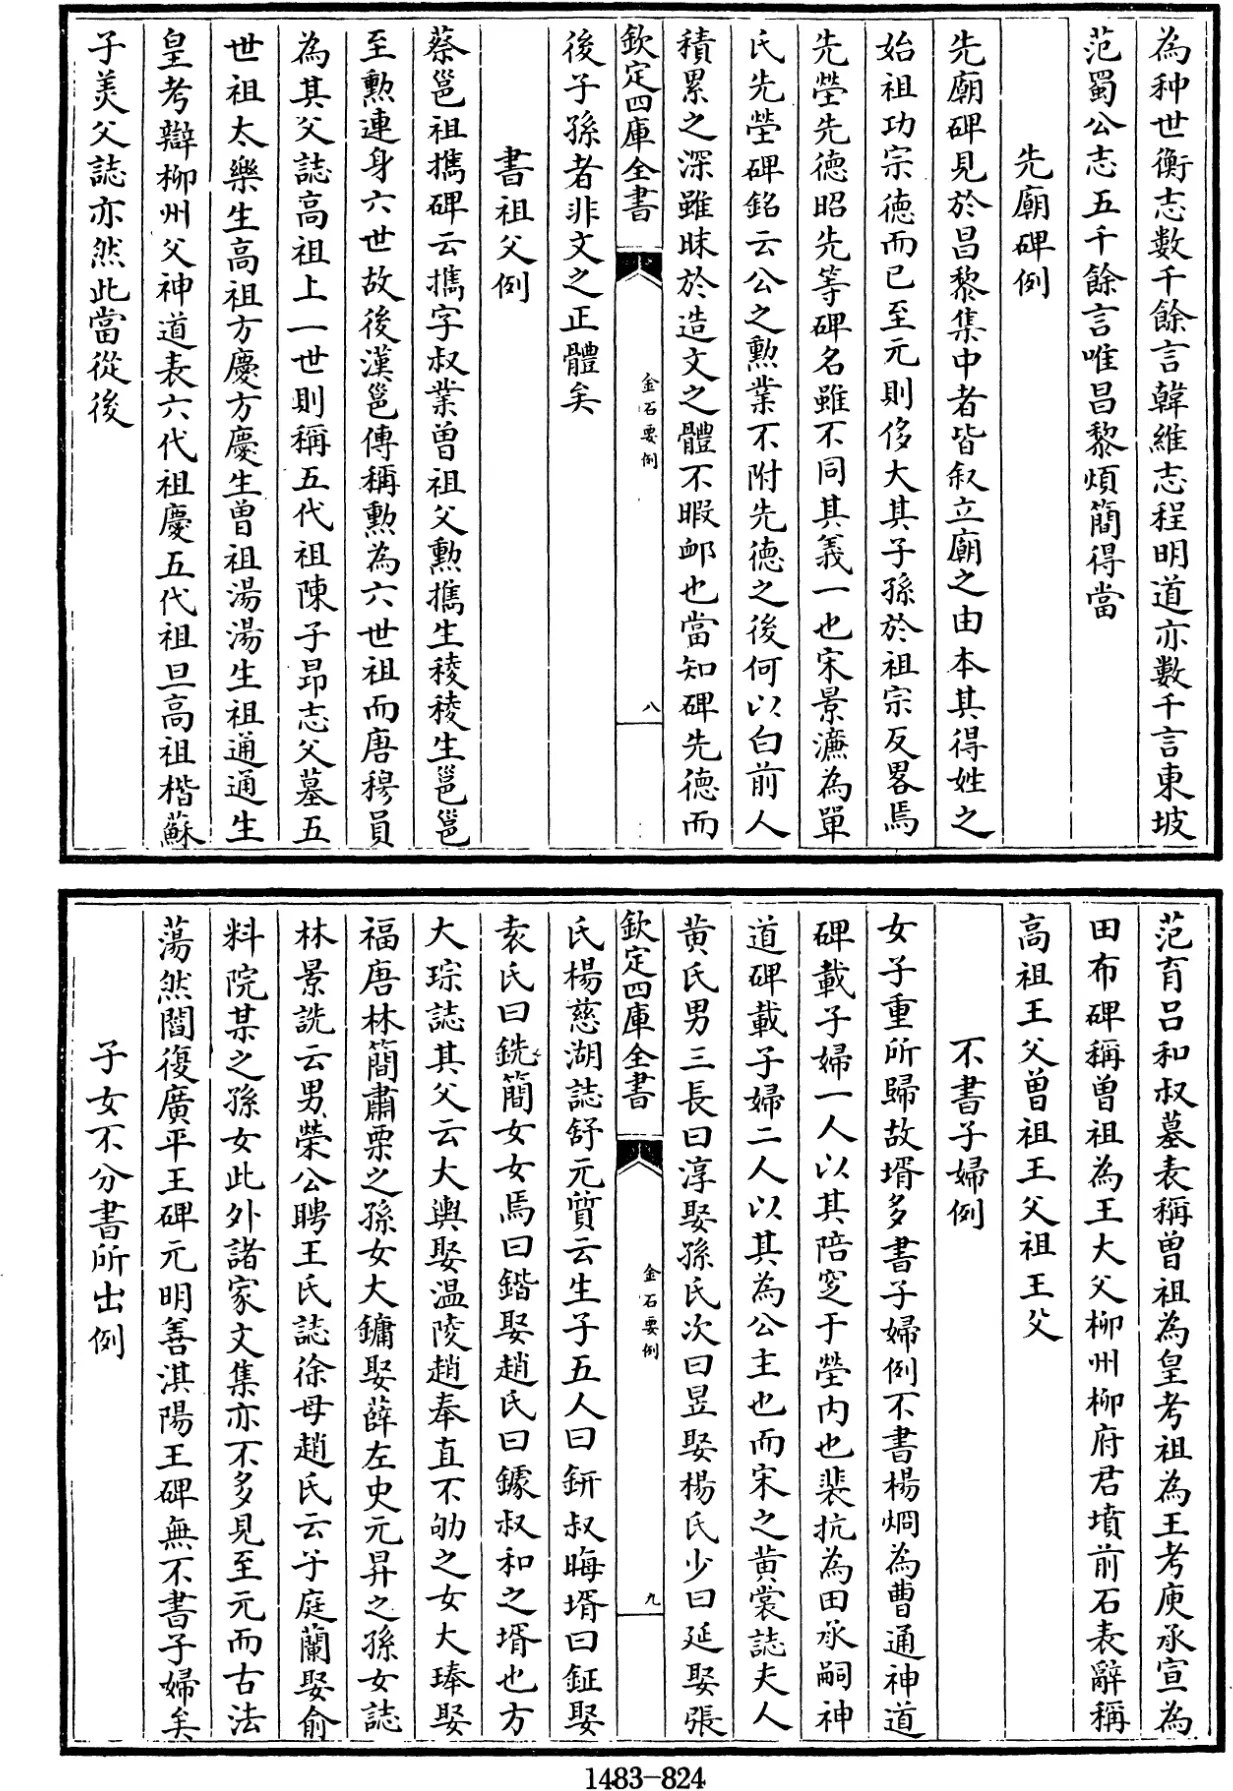 為种世衡志數千餘言韓維志程明道亦數千言東坡
范蜀公志五千餘言唯昌黎煩簡得當
先廟碑例
先廟碑見於昌黎集中者皆叙立廟之由本其得姓之
始祖功宗德而已至元則侈大其子孫於祖宗反畧焉
先塋先德昭先等碑名雖不同其義一也宋景濂為單
氏先塋碑銘云公之勲業不附先德之後何以白前人
積累之深雖昧於造文之體不暇卹也當知碑先德而
欽定四庫全書
金石要例
八
後子孫者非文之正體矣
書祖父例
蔡邕祖攜碑云攜字叔業曾祖父勲攜生稜稜生邕邕
至勲連身六世故後漢邕傳稱勲為六世祖而唐穆員
為其父誌高祖上一世則稱五代祖陳子昂志父墓五
世祖太樂生高祖方慶方慶生曾祖湯湯生祖通通生
皇考辯柳州父神道表六代祖慶五代祖旦高祖楷蘇
子美父誌亦然此當從後
范育呂和叔墓表稱曽祖為皇考祖為王考庾承宣為
田布碑稱曽祖為王大父柳州柳府君墳前石表辭稱
高祖王父曽祖王父祖王父
不書子婦例
女子重所歸故壻多書子婦例不書楊烱為曹通神道
碑載子婦一人以其陪窆于塋内也裴抗為田承嗣神
道碑載子婦二人以其為公主也而宋之黄裳誌夫人
黄氏男三長曰淳娶孫氏次曰昱娶楊氏少曰延娶張
欽定四庫全書
金石要例
九
氏楊慈湖誌舒元質云生子五人曰銒叔晦壻曰鉦娶
袁氏曰銑簡女女焉曰鍇娶趙氏曰鐻叔和之壻也方
大琮誌其父云大輿娶温陵趙奉直不劬之女大琫娶
福唐林簡肅栗之孫女大鏞娶薛左史元昇之孫女誌
林景詵云男榮公聘王氏誌徐母趙氏云子庭蘭娶俞
料院某之孫女此外諸家文集亦不多見至元而古法
蕩然閻復廣平王碑元明善淇陽王碑無不書子婦矣
子女不分書所出例
1483-824